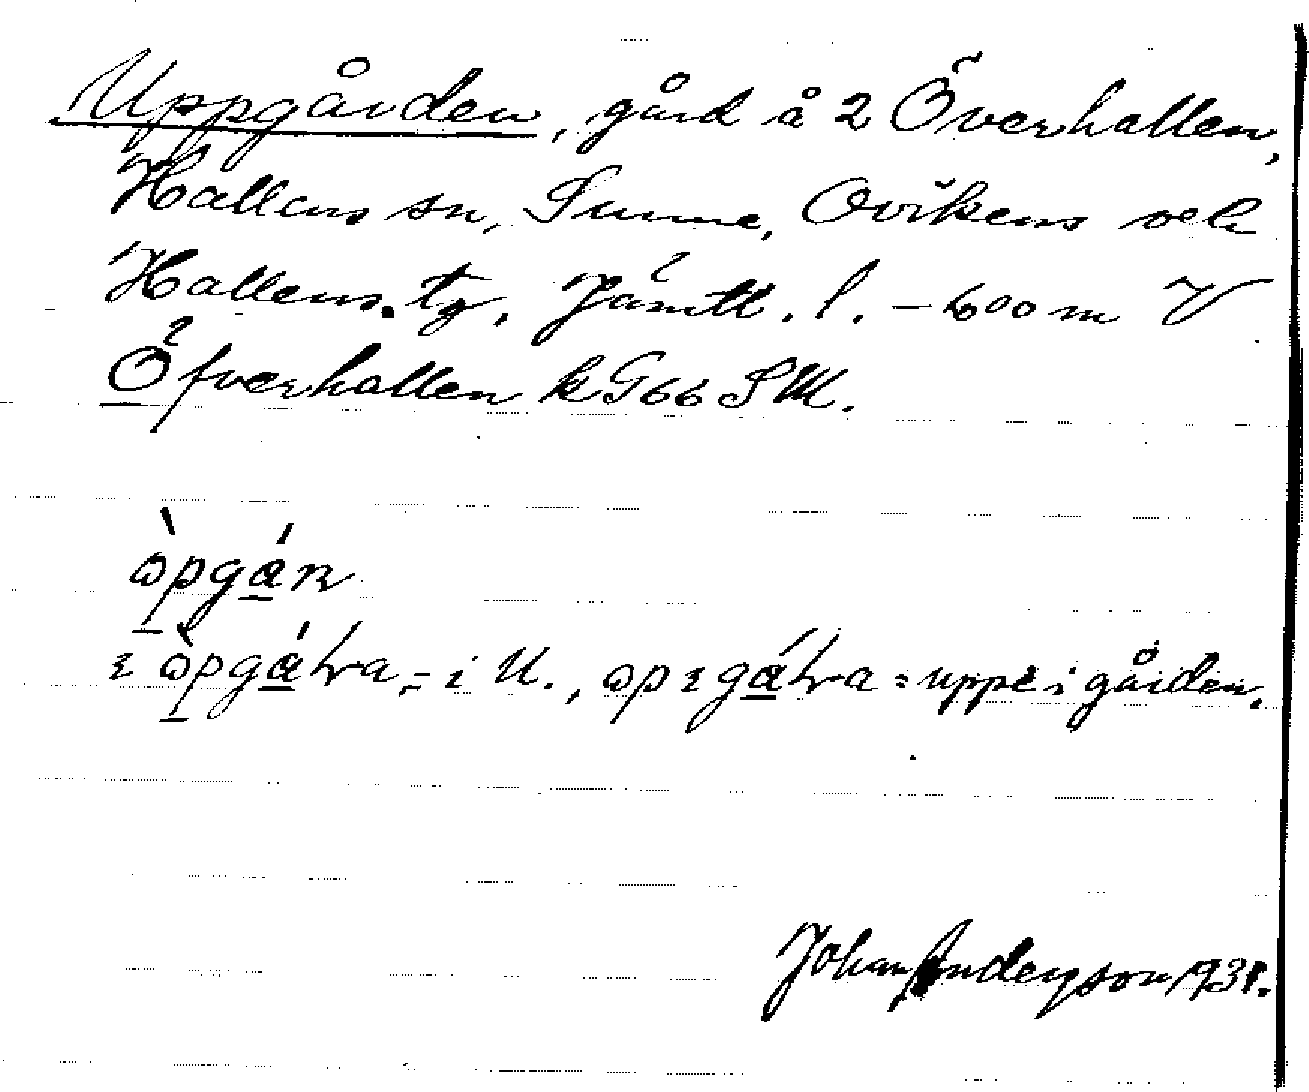 Uppgården, gård å 2 Överhallen,
Hallens sn, Sunne, Ovikens och
Hallens tg, Jämtl. l. – 600 m V
Öfverhallen k G 66 SM.
ɷ̀pgán
ɩ ɷ̀pgátra = i U., ɷpɩgátra = uppe i gården.
Johan Anderson 1931.